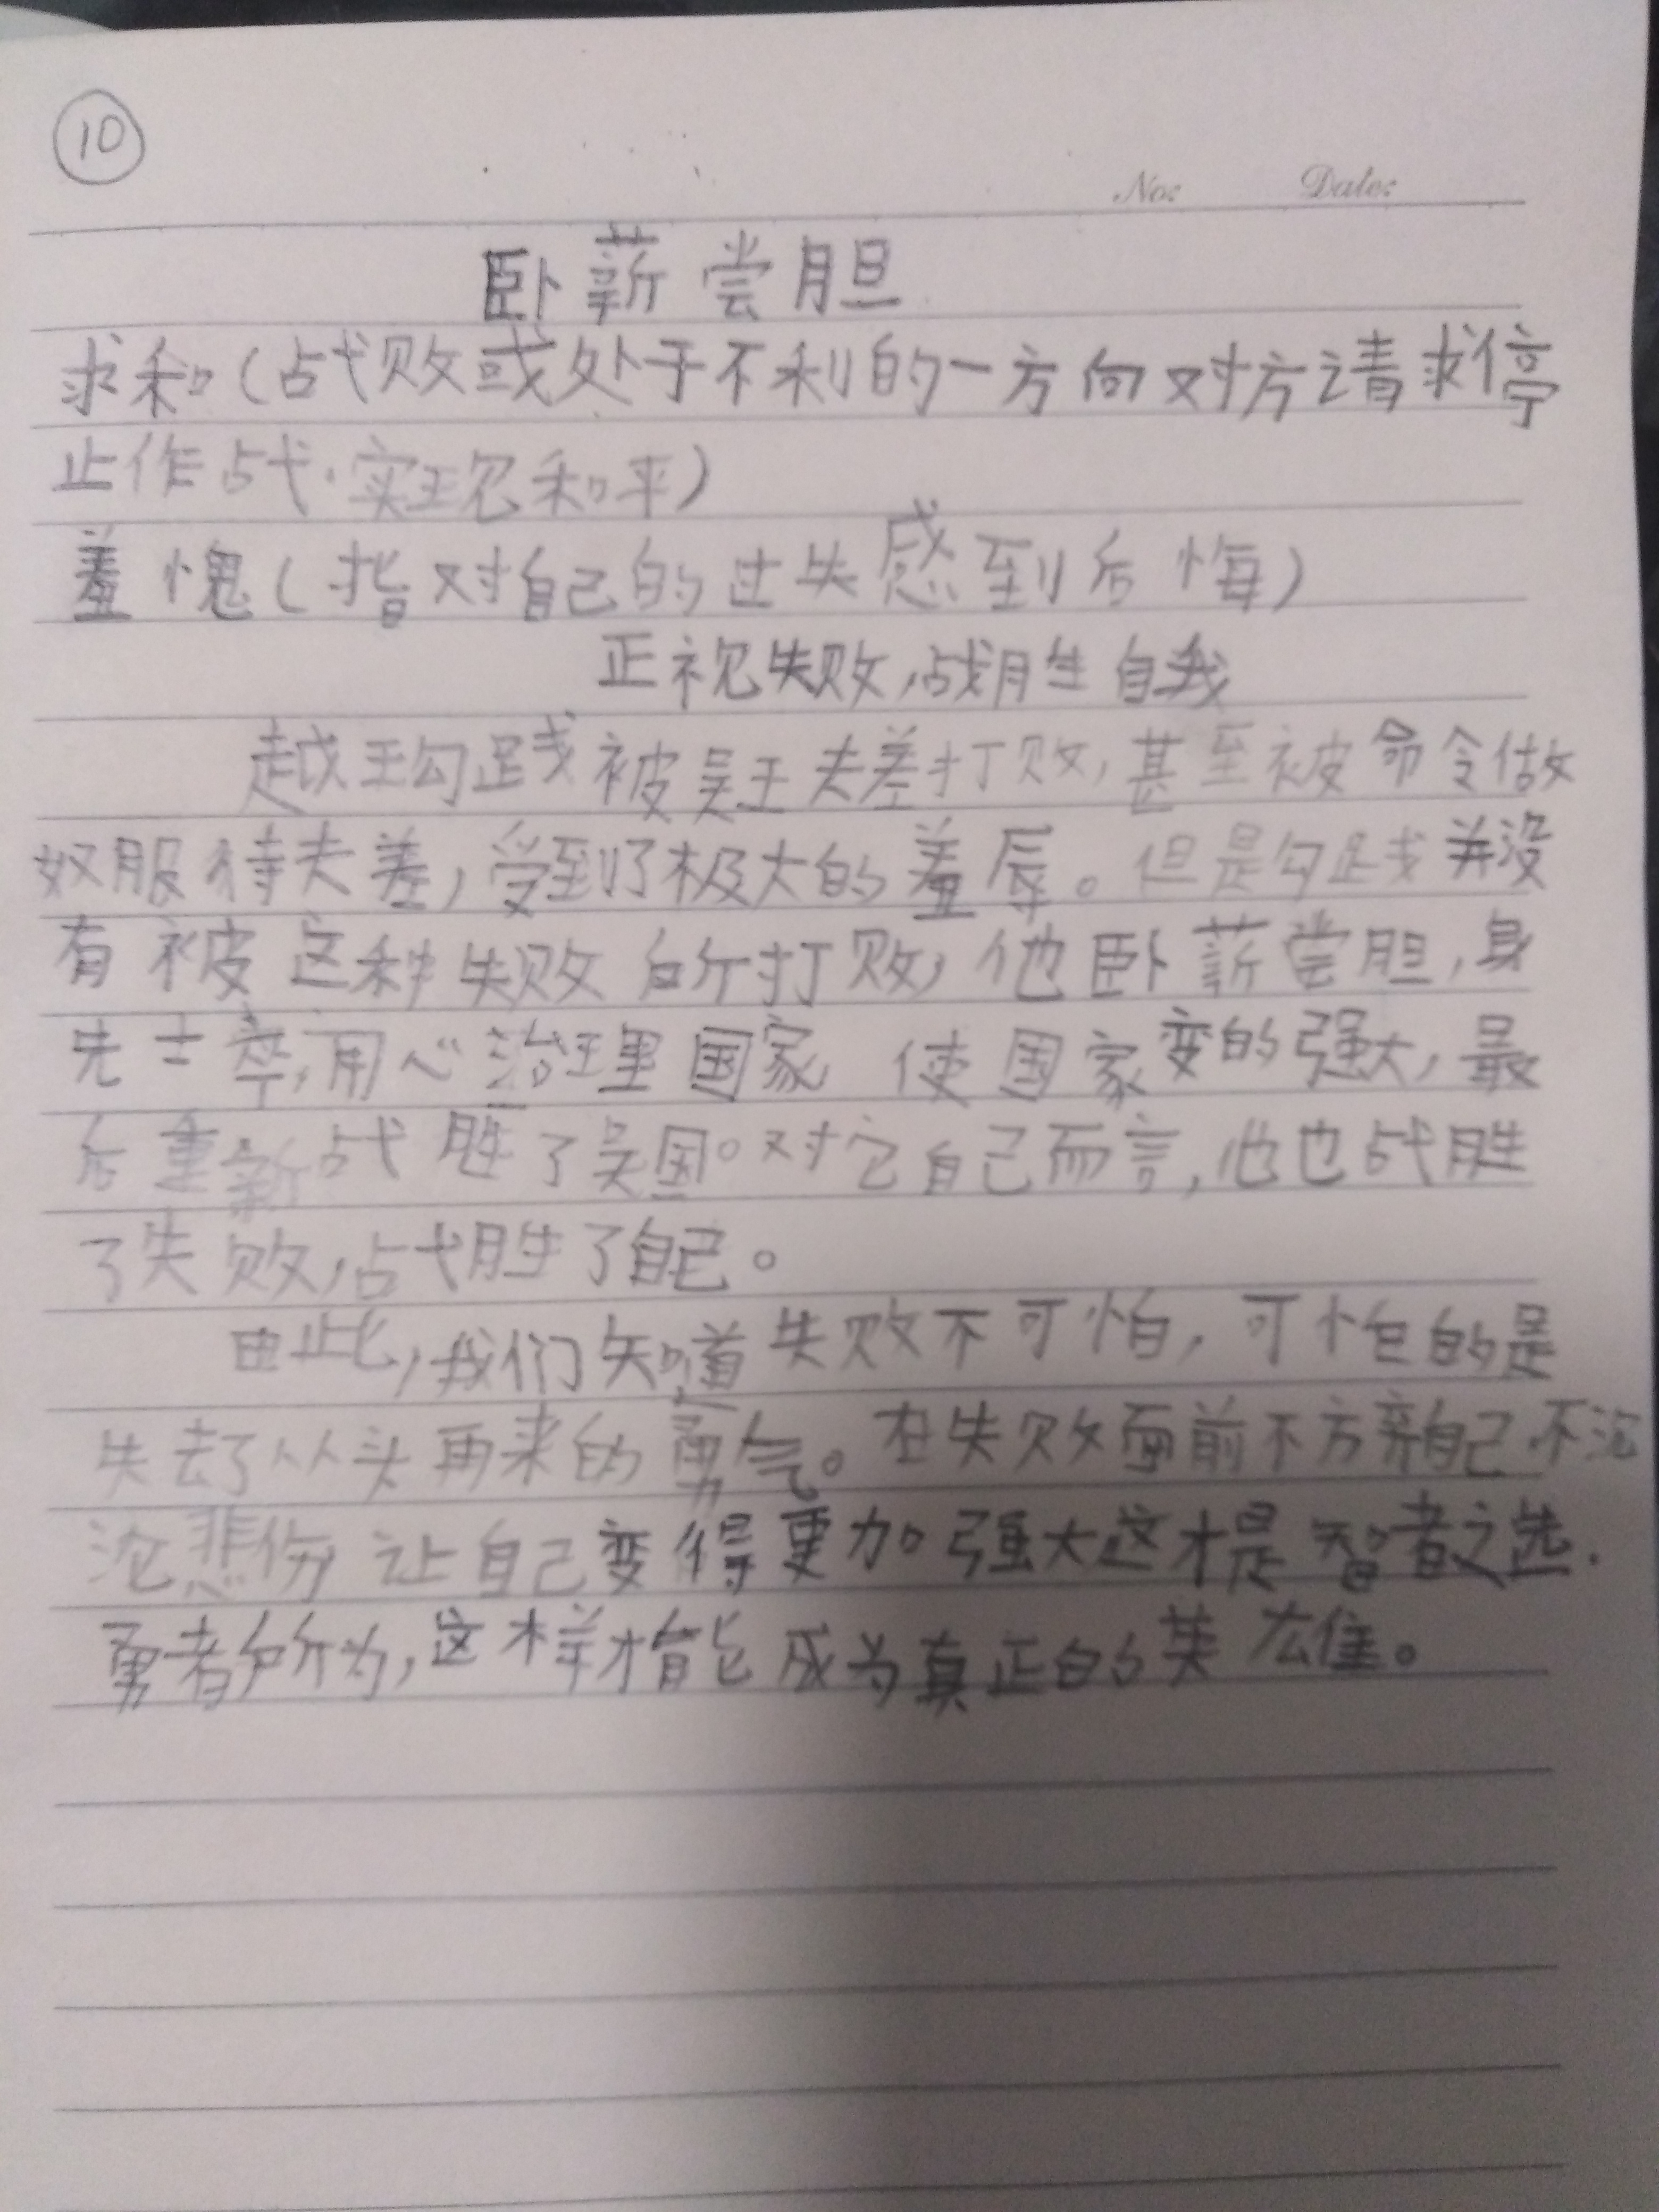 10
No: Date:
卧薪尝胆
求和(占战败或处于不利的一方向对方请求停
止作战·实现和平)
羞愧(指对自己的过失感到后悔)
正视失败,战胜自我
越王勾践被吴王夫差打败,甚至被命令做
奴服待夫差,受到了极大的羞辱。但是勾践并没
有被这种失败所打败,他卧薪尝胆,身
先士卒,用心治理国家 使国家变的强大,最
后重新战胜了吴国。对它自己而言,他也战胜
了失败,战胜了自己。
由此,我们知道失败不可怕,可怕的是
失去了从头再来的勇气。在失败面前不方弃自己.不沉
沦悲伤 让自己变得更加强大这才是智者之选.
勇者所为,这样才能成为真正的英雄。